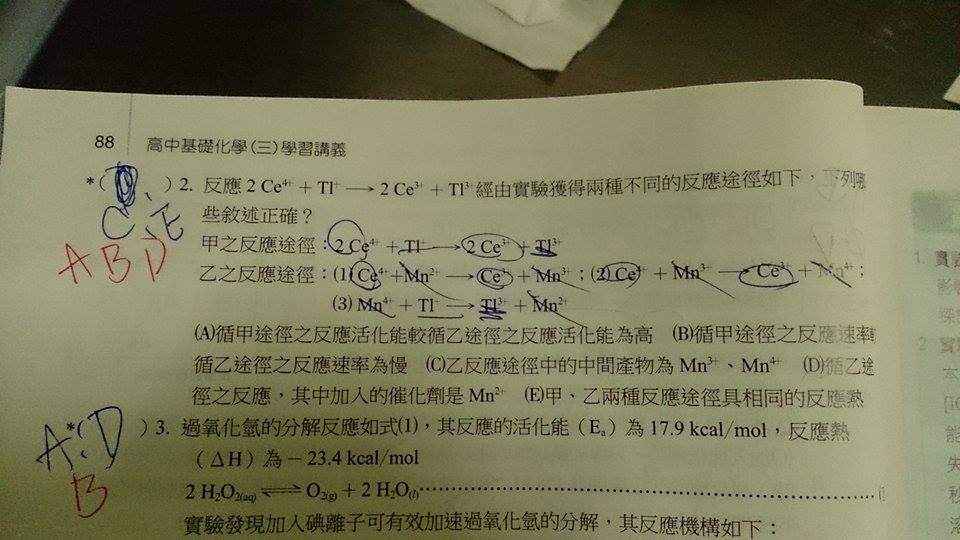 88 高中基礎化學(三)學習講義
*( ) 2. 反應 2 Ce⁴⁺ + Tl⁺ ⟶ 2 Ce³⁺ + Tl³⁺ 經由實驗獲得兩種不同的反應途徑如下，下列哪
C、E
些敘述正確？
ABD
甲之反應途徑：2 Ce⁴⁺ + Tl⁺ ⟶ 2 Ce³⁺ + Tl³⁺
乙之反應途徑：(1) Ce⁴⁺ + Mn²⁺ ⟶ Ce³⁺ + Mn³⁺；(2) Ce⁴⁺ + Mn³⁺ ⟶ Ce³⁺ + Mn⁴⁺；
(3) Mn⁴⁺ + Tl⁺ ⟶ Tl³⁺ + Mn²⁺
(A)循甲途徑之反應活化能較循乙途徑之反應活化能為高 (B)循甲途徑之反應速率較
循乙途徑之反應速率為慢 (C)乙反應途徑中的中間產物為 Mn³⁺、Mn⁴⁺ (D)循乙途
徑之反應，其中加入的催化劑是 Mn²⁺ (E)甲、乙兩種反應途徑具相同的反應熱
A、D
*( ) 3. 過氧化氫的分解反應如式(1)，其反應的活化能（Eₐ）為 17.9 kcal/mol，反應熱
（ΔH）為 − 23.4 kcal/mol
B
2 H₂O₂(aq) ⇌ O₂(g) + 2 H₂O(l)……………………………………
實驗發現加入碘離子可有效加速過氧化氫的分解，其反應機構如下：
1. 實
影
2 實
本
能
失
秒